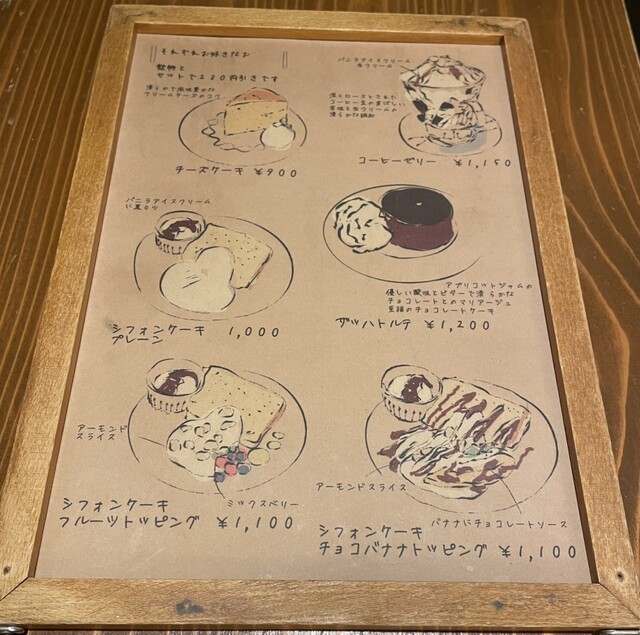 それぞれお好きなお
飲物と
セットで200円引きです
滑らかで風味豊かな
クリームチーズのコク
チーズケーキ ¥900
バニラアイスクリーム
生クリーム
深くローストされた
コーヒー豆の香ばしい
苦味と生クリームの
滑らかな調和
コーヒーゼリー ¥1,150
バニラアイスクリーム
に黒みつ
シフォンケーキ 1,000
プレーン
アプリコットジャムの
優しい酸味とビターで滑らかな
チョコレートとのマリアージュ
至福のチョコレートケーキ
ザッハトルテ ¥1,200
アーモンド
スライス
ミックスベリー
シフォンケーキ
フルーツトッピング ¥1,100
アーモンドスライス
バナナにチョコレートソース
シフォンケーキ
チョコバナナトッピング ¥1,100